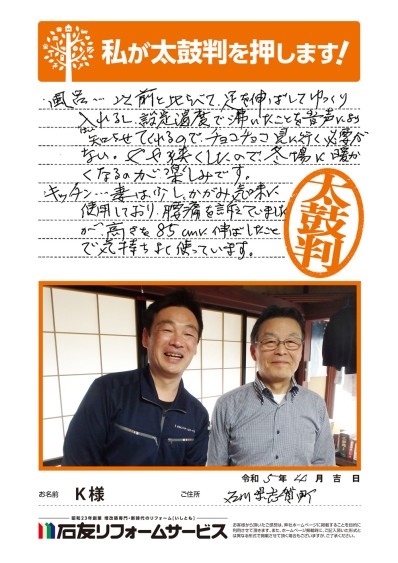 私が太鼓判を押します!
風呂… 以前と比べて、足を伸ばしてゆっくり
入れるし、設定温度で沸いたことを音声にお
知らせてくれるのでチョコチョコ見に行く必要が
ない。やや狭くしたので、冬場に暖か
くなるのが楽しみです。
キッチン… 妻は少しかがみ気味に
使用しており、腰痛を訴えていました
が、高さを85cmに伸ばしたこと
で気持ちよく使っています。
太鼓判
令和 5年 4月 吉日
お名前 K様 ご住所 石川県志賀町
昭和23年創業 増改築専門・新時代のリフォーム[いしとも]
石友リフォームサービス
お客様から頂いたご感想は、弊社ホームページに掲載することを目的に
利用させて頂きます。またホームページ掲載時に、ご記入頂いた形式と
は異なる形式で掲載させて頂く場合もございますが、ご了承ください。